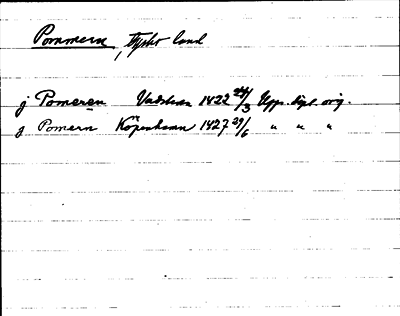 Pommern, tyskt land
j Pomeren Vadstena 1422 24/3 Upps. dipl. orig.
j Pomern Köpenhamn 1427 29/6 " " "